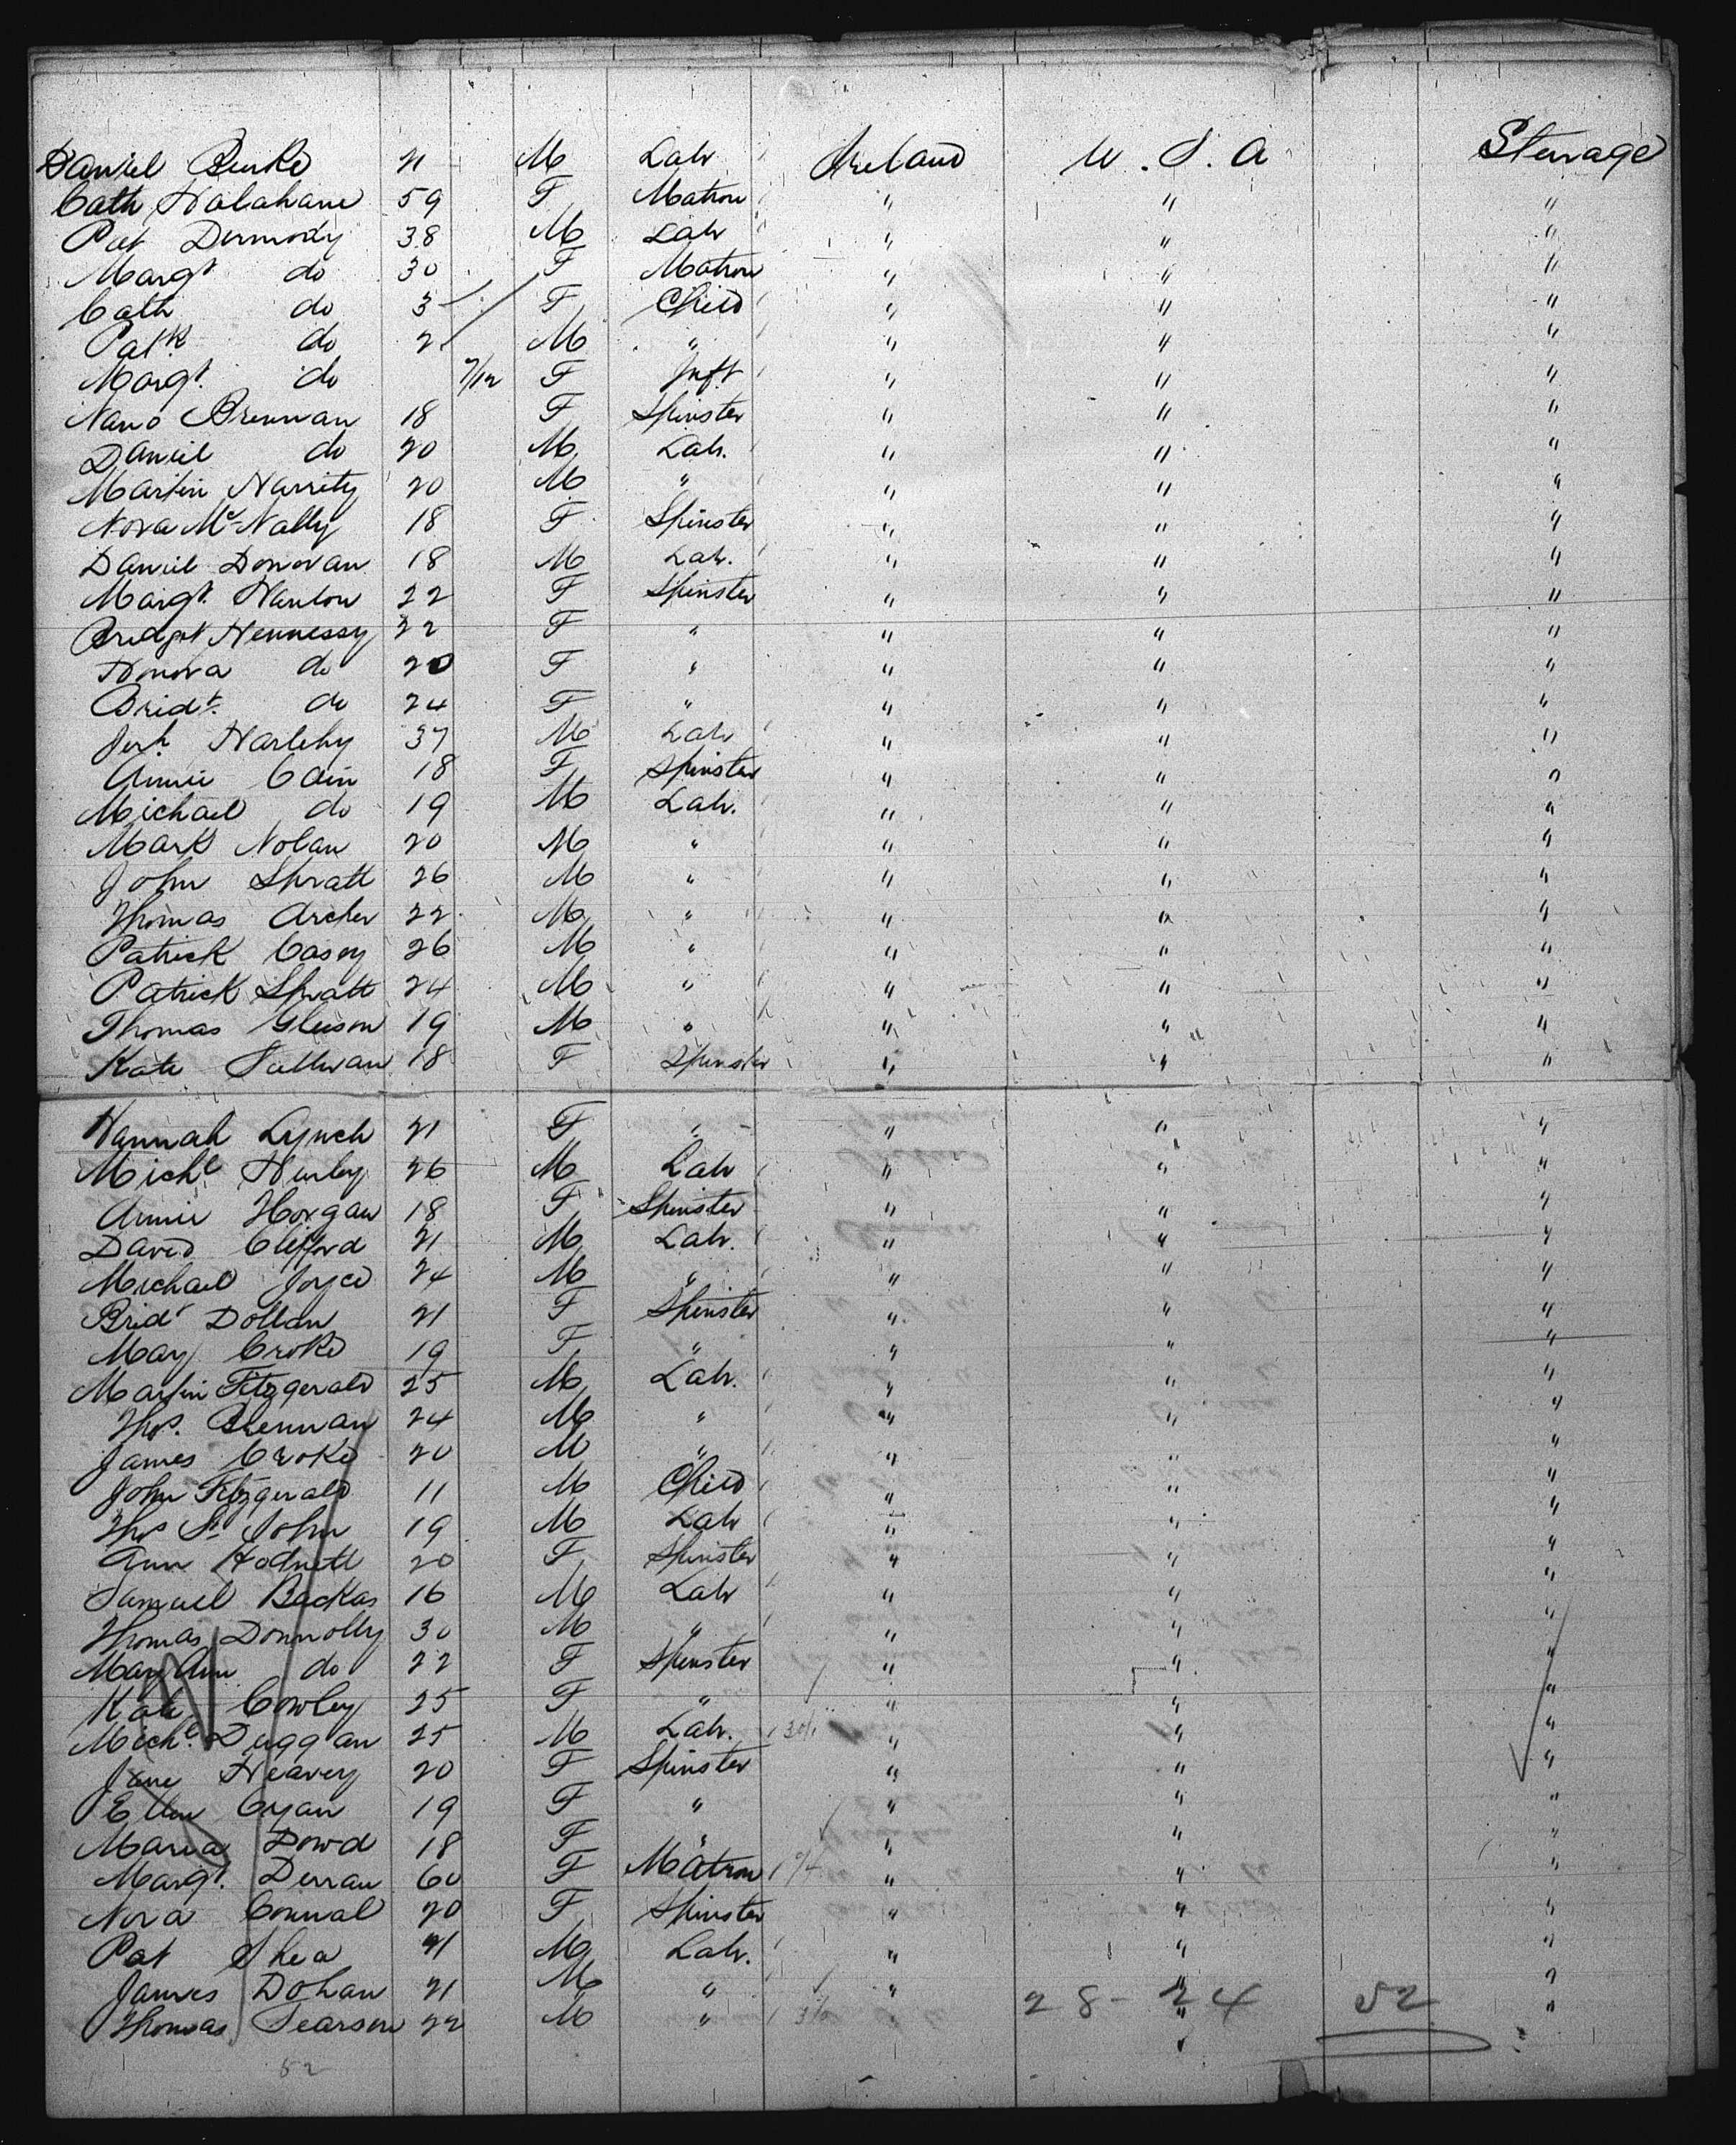 Daniel Burke 21 M Labr Ireland U.S.A Steerage
Cath Halahane 59 F Matron " " "
Pat Dermody 38 M Labr " " "
Margt do 30 F Matron " " "
Cath do 3 F Child " " "
Patk do 2 M " " " "
Margt. do 7/12 F Inft " " "
Nano Brennan 18 F Spinster " " "
Daniel do 20 M Labr. " " "
Martin Harrity 20 M " " " "
Nora McNally 18 F Spinster " " "
Daniel Donovan 18 M Labr. " " "
Margt. Hanlon 22 F Spinster " " "
Bridget Hennessy 22 F " " " "
Honora do 20 F " " " "
Bridt. do 24 F " " " "
Jerh Harlehy 37 M Labr " " "
Annie Cain 18 F Spinster " " "
Michael do 19 M Labr. " " "
Mark Nolan 20 M " " " "
John Spratt 26 M " " " "
Thomas Archer 22 M " " " "
Patrick Casey 26 M " " " "
Patrick Spratt 24 M " " " "
Thomas Gleeson 19 M " " " "
Kate Sullivan 18 F Spinster " " "
Hannah Lynch 21 F " " " "
Michl Hurley 26 M Labr " " "
Annie Horgan 18 F Spinster " " "
David Clifford 21 M Labr. " " "
Michael Joyce 24 M " " " "
Bridt Dollan 21 F Spinster " " "
Mary Croke 19 F " " " "
Martin Fitzgerald 25 M Labr. " " "
Thos. Brennan 24 M " " " "
James Croke 20 M " " " "
John Fitzgerald 11 M Child " " "
Thos St John 19 M Labr " " "
Ann Hodnett 20 F Spinster " " "
Samuel Backas 16 M Labr " " "
Thomas Donnolly 30 M " " " "
Mary Ann do 22 F Spinster " " "
Kate Cowley 25 F " " " "
Michl. Duggan 25 M Labr. " " "
Jane Heavey 20 F Spinster " " "
Ellen Cyan 19 F " " " "
Maria Dowd 18 F " " " "
Margt. Derran 60 F Matron " " "
Nora Connal 20 F Spinster " " "
Pat Shea 21 M Labr. " " "
James Dohan 21 M " " " "
Thomas Pearson 22 M " " " "
28 - 24 52
52